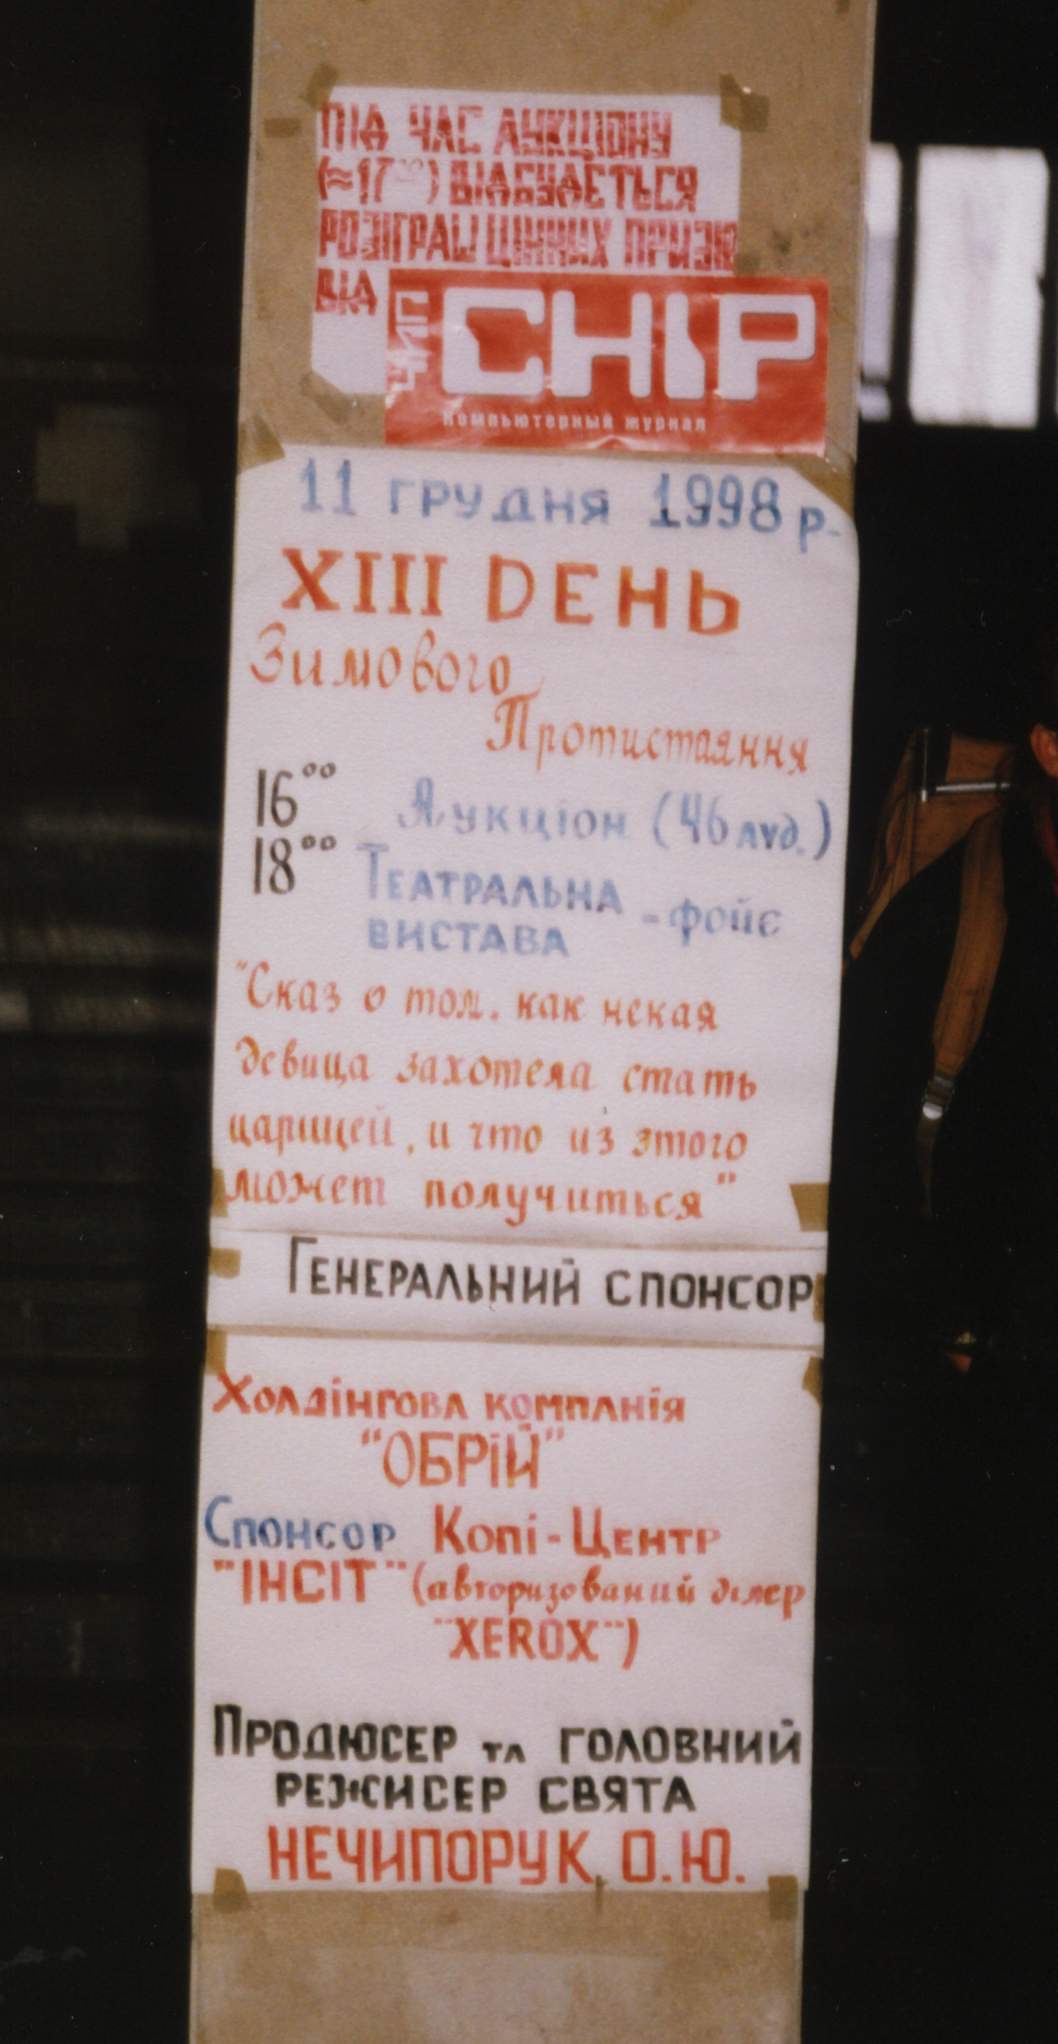 ПІД ЧАС АУКЦІОНУ
(≈17⁰⁰) ВІДБУДЕТЬСЯ
РОЗІГРАШ ЦІННИХ ПРИЗІВ
ВІД
ЧИП CHIP
компьютерный журнал
11 ГРУДНЯ 1998 р.
XIII ДЕНЬ
Зимового
Протистаяння
16⁰⁰ Аукціон (46 ауд.)
18⁰⁰ ТЕАТРАЛЬНА - фойє
ВИСТАВА
"Сказ о том, как некая
девица захотела стать
царицей, и что из этого
может получиться"
ГЕНЕРАЛЬНИЙ СПОНСОР
ХОЛДІНГОВА КОМПАНІЯ
"ОБРІЙ"
СПОНСОР КОПІ-ЦЕНТР
"ІНСІТ" (авторизований ділер
"XEROX")
ПРОДЮСЕР ТА ГОЛОВНИЙ
РЕЖИСЕР СВЯТА
НЕЧИПОРУК О.Ю.